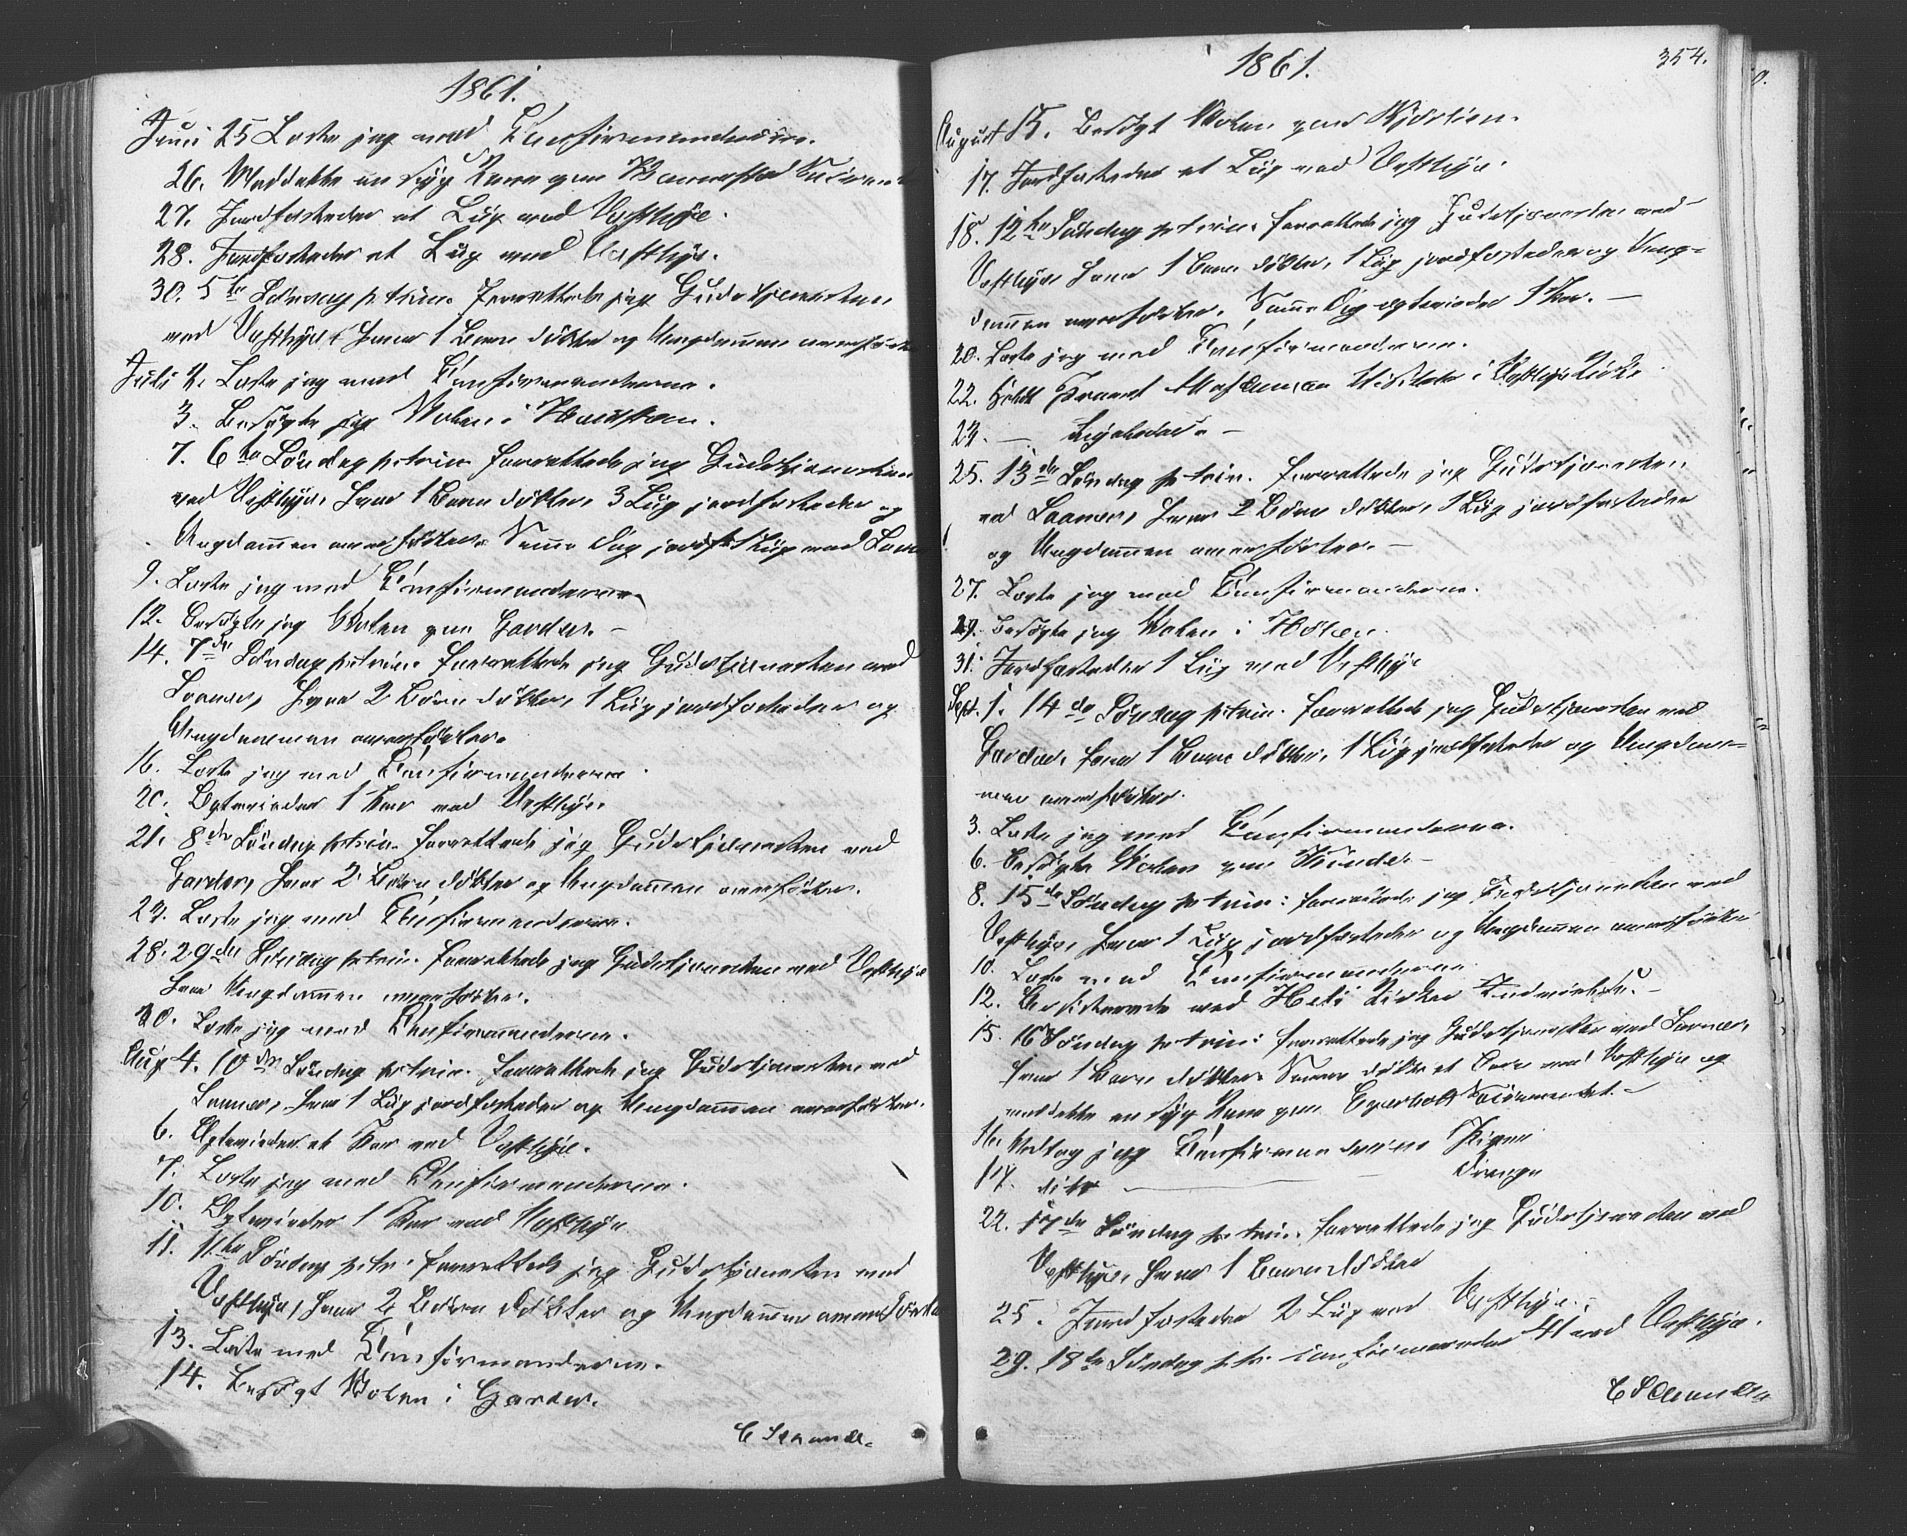 1861.
Juni 25 Læste jeg med Confirmanderne.
26. Meddelte en syg Kone paa
27. Jordfæstedes et Liig ved Vestbye.
28. Jordfæstedes et Liig ved Vestbye.
30. 5te Søndag p. trin. forrettede jeg Gudstjenesten
ved Vestbye, hvor 1 Barn døbtes og Ungdommen
Juli 2. Læste jeg med Confirmanderne.
3. Besøgte jeg Skolen i
7. 6te Søndag p. trin. forrettede jeg Gudstjenesten
ved Vestbye, hvor 1 Barn døbtes, 3 Liig jordfæstedes og
Ungdommen overhørtes. Samme Dag jordf. 1 Liig ved
9. Læste jeg med Confirmanderne.
12. Besøgte jeg Skolen paa Garder. –
14. 7de Søndag p. trin. forrettede jeg Gudstjenesten ved
Saaner, hvor 2 Børn døbtes, 1 Liig jordfæstedes og
Ungdommen overhørtes.
16. Læste jeg med Confirmanderne.
20. Egteviedes 1 Par ved Vestbye.
21. 8de Søndag p. trin. forrettede jeg Gudstjenesten ved
Garder, hvor 2 Børn døbtes og Ungdommen overhørtes.
23. Læste jeg med Confirmanderne.
28. 29de Søndag p. trin. forrettede jeg Gudstjenesten ved Vestbye
hvor Ungdommen overhørtes.
30. Læste jeg med Confirmanderne.
Aug 4. 10de Søndag p. trin. forrettede jeg Gudstjenesten ved
Saaner, hvor 1 Liig jordfæstedes og Ungdommen overhørtes.
6. Egteviedes et Par ved Vestbye.
7. Læste jeg med Confirmanderne.
10. Egteviedes 1 Par ved Vestbye
11. 11te Søndag p. tr. forrettede jeg Gudstjenesten ved
Vestbye, hvor 2 Børn døbtes og Ungdommen
13. Læste med Confirmanderne.
14. Besøgt Skolen i Garder.
1861.
354.
August 15. Besøgt Skolen paa
17. Jordfæstedes et Liig ved Vestbye.
18. 12te Søndag p. trin. forrettede jeg Gudstjenesten ved
Vestbye hvor 1 Barn døbtes, 1 Liig jordfæstedes og Ung-
dommen overhørtes. Samme Dag egteviedes 1 Par. –
20. Læste jeg med Confirmanderne.
22. Holdt Provst Visitats i Vestbye Kirke
23. –
25. 13de Søndag p. trin. forrettede jeg Gudstjenesten
ved Saaner, hvor 2 Børn døbtes, 1 Liig jordfæstedes
og Ungdommen overhørtes. –
27. Læste jeg med Confirmanderne.
29. Besøgte jeg Skolen i
31. Jordfæstedes 1 Liig ved Vestbye
Sept. 1. 14de Søndag p. trin. forrettede jeg Gudstjenesten ved
Garder, hvor 1 Barn døbtes, 1 Liig jordfæstedes og Ungdom-
men overhørtes.
3. Læste jeg med Confirmanderne.
6. Besøgte Skolen paa
8. 15de Søndag p. trin. forrettede jeg Gudstjenesten ved
Vestbye, hvor 1 Liig jordfæstedes og Ungdommen overhørtes
10. Læste med Confirmanderne
12. Assisterede ved Kirkes Indvielse. –
15. 16de Søndag p. trin. forrettede jeg Gudstjenesten ved Saaner,
hvor 1 Barn døbtes. Samme døbtes et Barn ved Vestbye og
meddelte en syg Kone paa Sacramentet. –
16. Modtog jeg Confirmanderne Piger
17. dito Drenge
22. 17de Søndag p. trin. forrettede jeg Gudstjenesten ved
Vestbye, hvor 1 Barn døbtes
25. Jordfæstedes 2 Liig ved Vestbye. –
29. 18te Søndag p. tr. confirmeredes 41 ved Vestbye.